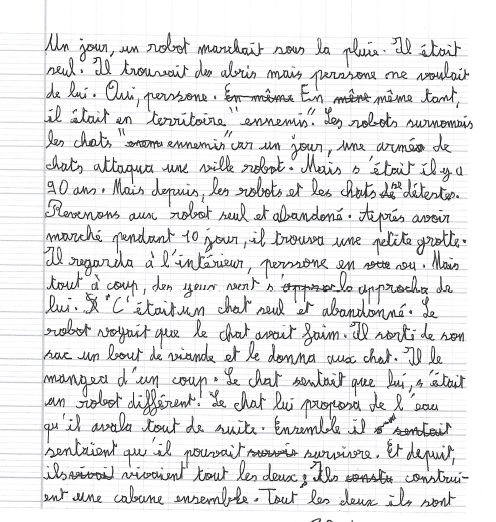 Un jour, un robot marchait sous la pluie. Il était
seul. Il trouvait des abris mais perssone ne voulait
de lui. Oui, perssone. En même En même même tant,
il était en territoire "ennemis". Les robots surnomais
les chats "ennemis" car un jour, une armée de
chats attaqua une ville robot. Mais s'était il y a
90 ans. Mais depuis, les robots et les chats se détestes.
Revenons aux robot seul et abandoné. Après avoir
marché pendant 10 jour, il trouva une petite grotte.
Il regarda à l'intérieur, perssone en vu. Mais
tout à coup, des yeux vert s'approcha de
lui. C'était un chat seul et abandonné. Le
robot voyait que le chat avait faim. Il sorti de son
sac un bout de viande et le donna aux chat. Il le
mangea d'un coup. Le chat sentait que lui, s'était
un robot différent. Le chat lui proposa de l'eau
qu'il avala tout de suite. Ensemble il sentait
sentaient qu'il pouvait survivre. Et depuit,
ils vivaient tout les deux, Ils construi-
ent une cabane ensemble. Tout les deux ils sont